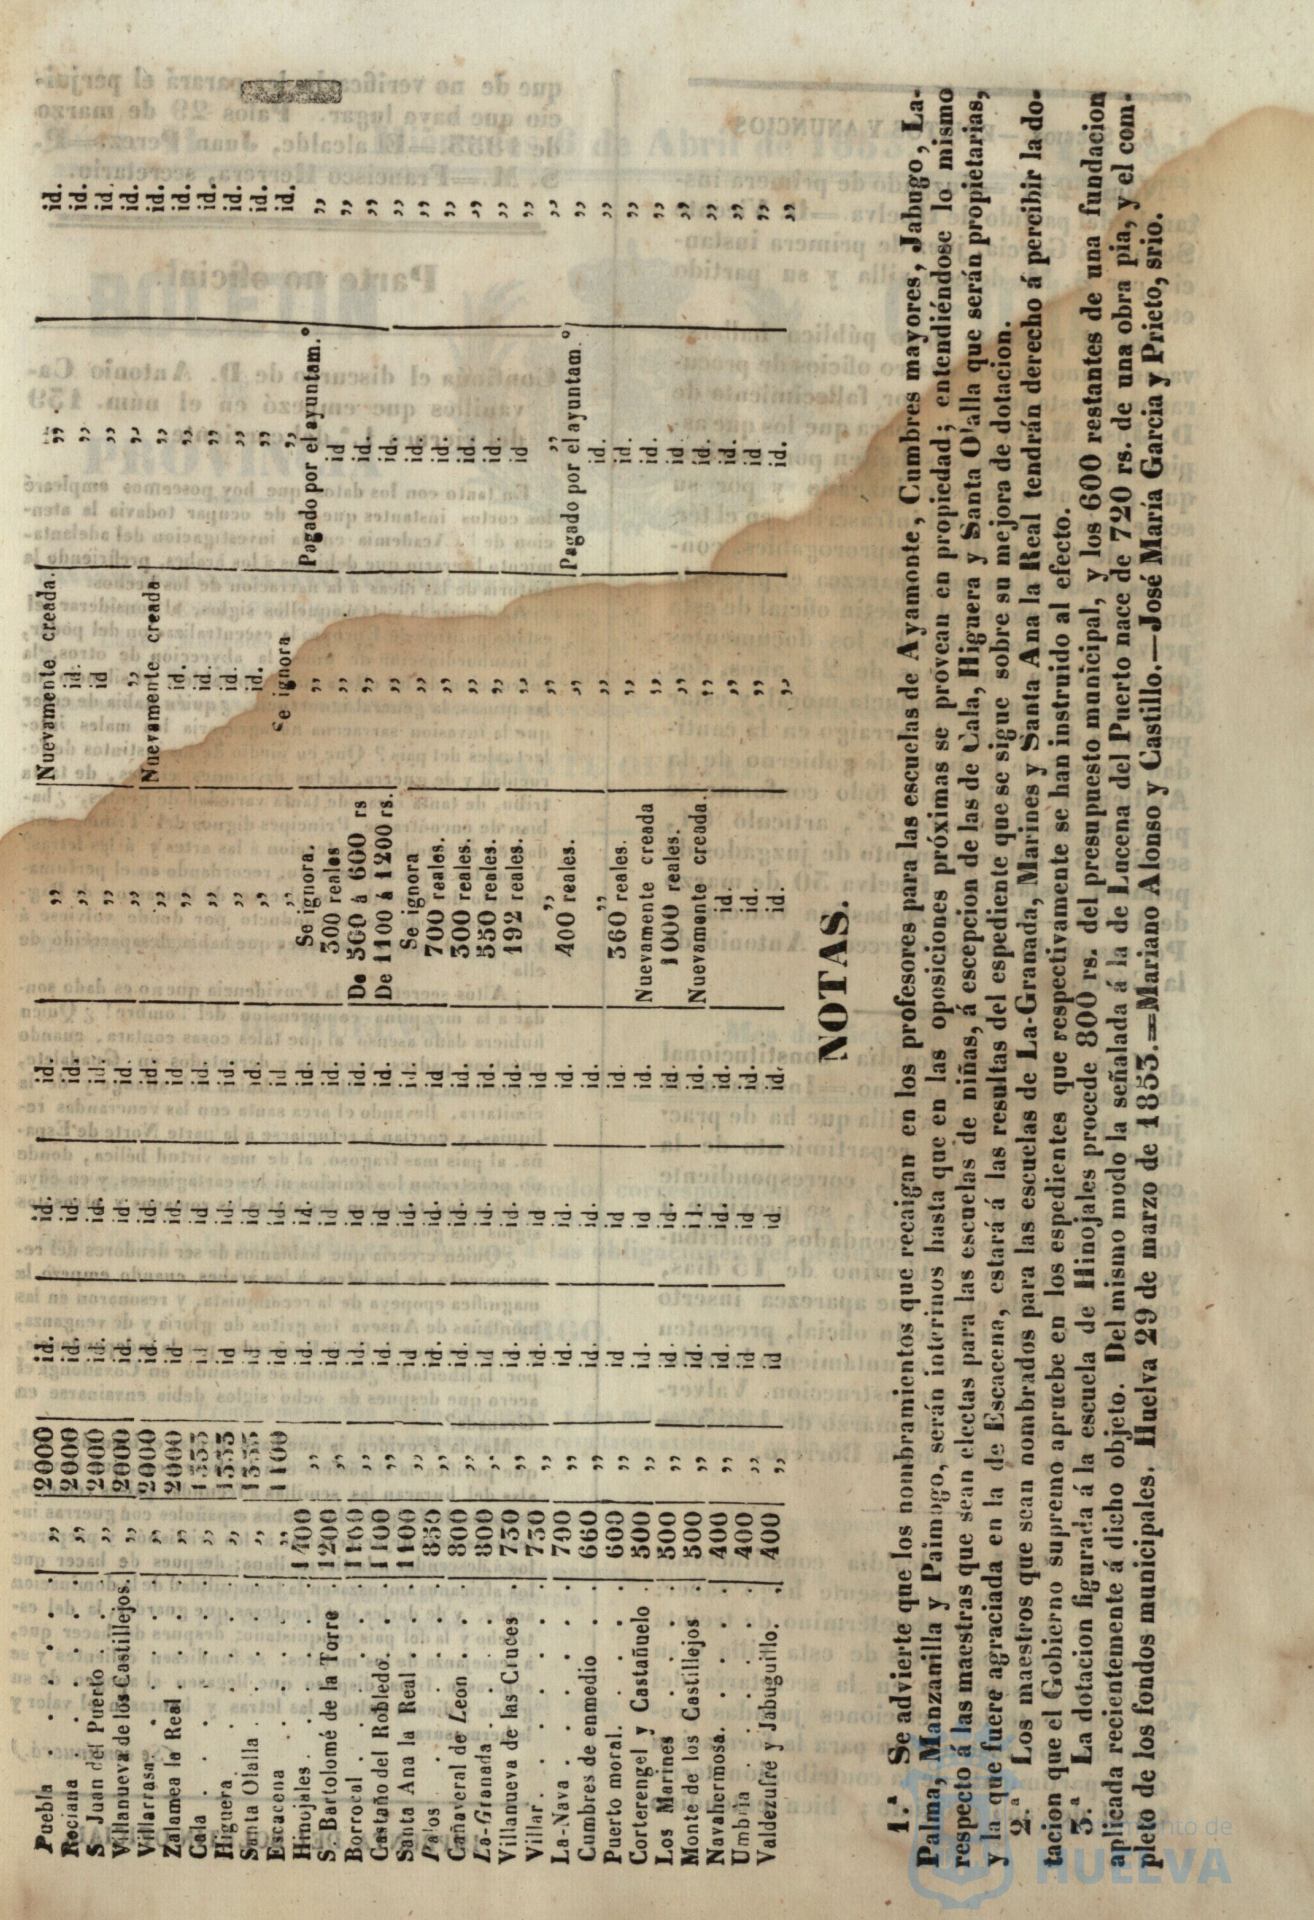 Puebla . . . . . ,, 2000 id. id. id. ,, Nuevamente creada. ,, id.
Rociana . . . . ,, 2000 id. id. id. ,, id. ,, id.
S. Juan del Puerto . . ,, 2000 id. id. id. ,, id ,, id.
Villanueva de los Castillejos. ,, 2000 id. id. id. ,, ,, ,, id.
Villarrasa . . . . ,, 2000 id. id. id. ,, Nuevamente creada ,, id.
Zalamea la Real . . . ,, 2000 id id. id. ,, id. ,, id.
Cala . . . . . ,, 1333 id id id. ,, id. ,, id.
Higuera . . . . ,, 1333 id id id. ,, id. ,, id.
Santa Olalla . . . . ,, 1333 id id id. ,, id. ,, id.
Escacena . . . . ,, 1100 id. id id. ,, Se ignora ,, id.
Hinojales . . . . 1400 ,, id. id. id. Se ignora. ,, Pagado por el ayuntam.° ,,
S. Bartolomé de la Torre 1200 ,, id. id id. 300 reales ,, id ,,
Borrocal . . . . 1100 ,, id. id id. De 360 á 600 rs ,, id. ,,
Castaño del Robledo. . 1100 ,, id. id id. De 1100 á 1200 rs. ,, id. ,,
Santa Ana la Real . . 1100 ,, id. id. id. Se ignora ,, id. ,,
Palos . . . . 850 ,, id. id. id. 700 reales. ,, id. ,,
Cañaveral de Leon . . 800 ,, id. id. id. 300 reales. ,, id. ,,
La-Granada . . . . 800 ,, id id. id. 550 reales. ,, id. ,,
Villanueva de las Cruces . 730 ,, id. id. id. 192 reales. ,, id ,,
Villar . . . . . 730 ,, id. id id. ,, ,, ,, ,,
La-Nava . . . . 790 ,, id. id. id. 400 reales. ,, Pagado por el ayuntam.° ,,
Cumbres de enmedio . . 660 ,, id. id. id. ,, ,, id. ,,
Puerto moral. . . . 600 ,, id id id. 360 reales. ,, id. ,,
Corterengel y Castañuelo . 500 ,, id. id id. Nuevamente creada ,, id. ,,
Los Marines . . . . 500 ,, id. id. id. 1000 reales. ,, id. ,,
Monte de los Castillejos . 500 ,, id. id. id. Nuevamente creada. ,, id. ,,
Navahermosa. . . . 400 ,, id. id. id. id. ,, id. ,,
Umbria . . . . 400 ,, id id id. id. ,, id. ,,
Valdezufre y Jabuguillo. . 400 ,, id id. id. id. ,, id. ,,
NOTAS.
1.ª Se advierte que los nombramientos que recaigan en los profesores para las escuelas de Ayamonte, Cumbres mayores, Jabugo, La-
Palma, Manzanilla y Paimogo, serán interinos hasta que en las oposiciones próximas se provean en propiedad; entendiéndose lo mismo
respecto á las maestras que sean electas para las escuelas de niñas, á escepcion de las de Cala, Higuera y Santa Olalla que serán propietarias,
y la que fuere agraciada en la de Escacena, estará á las resultas del espediente que se sigue sobre su mejora de dotacion.
2.ª Los maestros que sean nombrados para las escuelas de La-Granada, Marines y Santa Ana la Real tendrán derecho á percibir la do-
tacion que el Gobierno supremo apruebe en los espedientes que respectivamente se han instruido al efecto.
3.ª La dotacion figurada á la escuela de Hinojales procede 800 rs. del presupuesto municipal, y los 600 restantes de una fundacion
aplicada recientemente á dicho objeto. Del mismo modo la señalada á la de Lucena del Puerto nace de 720 rs. de una obra pia, y el com-
pleto de los fondos municipales. Huelva 29 de marzo de 1853.=Mariano Alonso y Castillo.—José María Garcia y Prieto, srio.
HUELVA